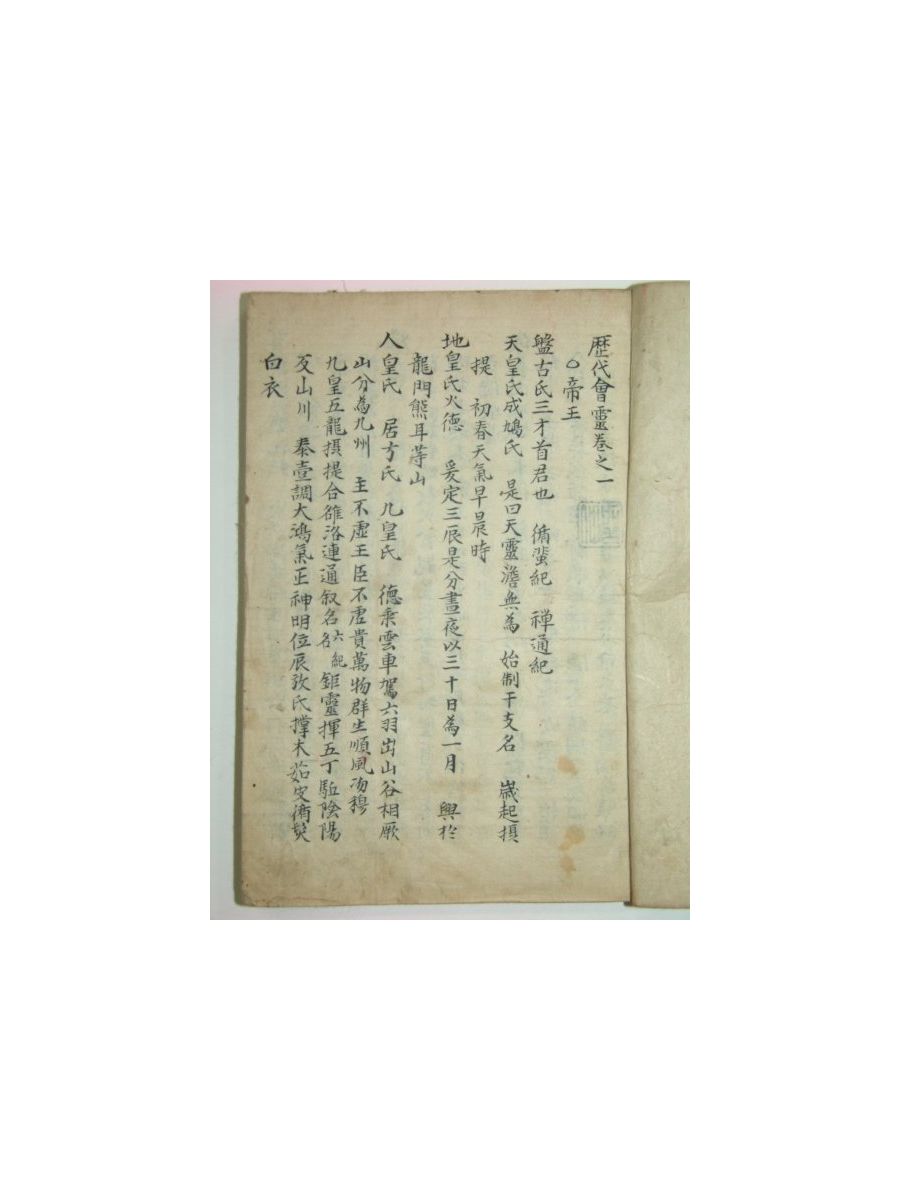 歷代會靈卷之一
○帝王
盤古氏三才首君也 循蜚紀 禪通紀
天皇氏成鳩氏 是曰天靈澹無為 始制干支名 歲起摂
提 初春天氣早晨時
地皇氏火德 爰定三辰是分晝夜以三十日為一月 興於
龍門熊耳等山
人皇氏 居方氏 九皇氏 德乘雲車駕六羽出山谷相厥
山分為九州 主不虛王臣不虛貴萬物群生順風沕穆
九皇五龍摂提合雒洛連通叙名各六紀鉅靈揮五丁駈陰陽
反山川 泰壹調大鴻氣正神明位辰放氏
白衣